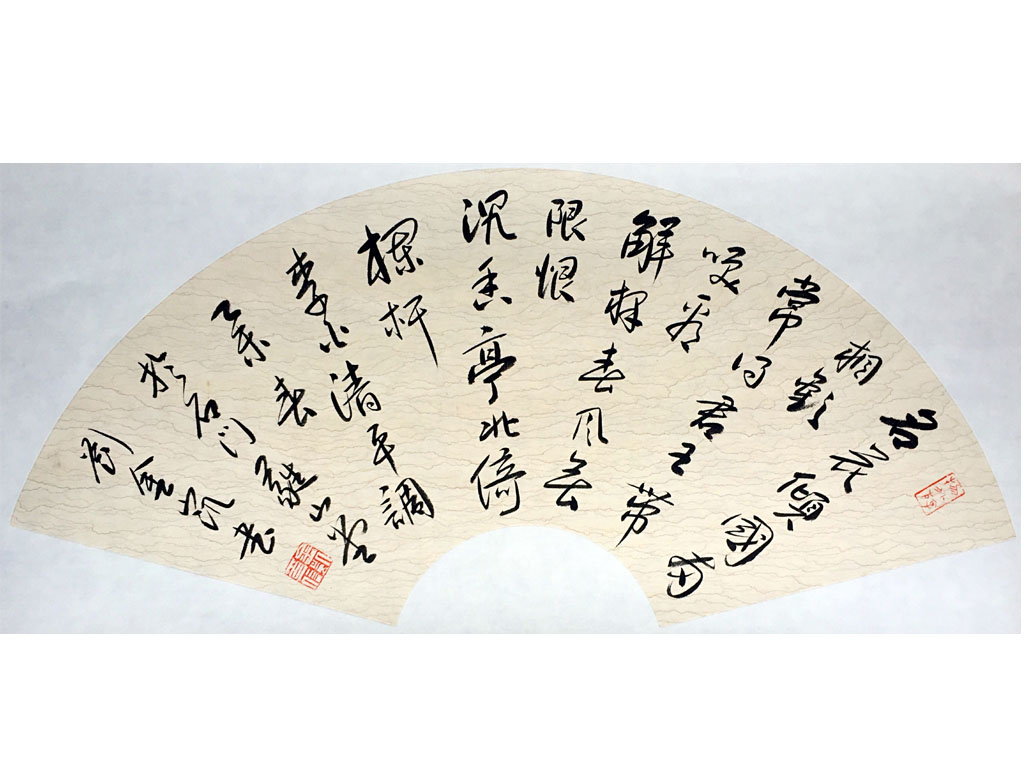 名花傾國兩
相歡
常得君王帶
笑看
解釋春風無
限恨
沉香亭北倚
欄杆
李白清平調
乙未春山客
於石門
劉凱書